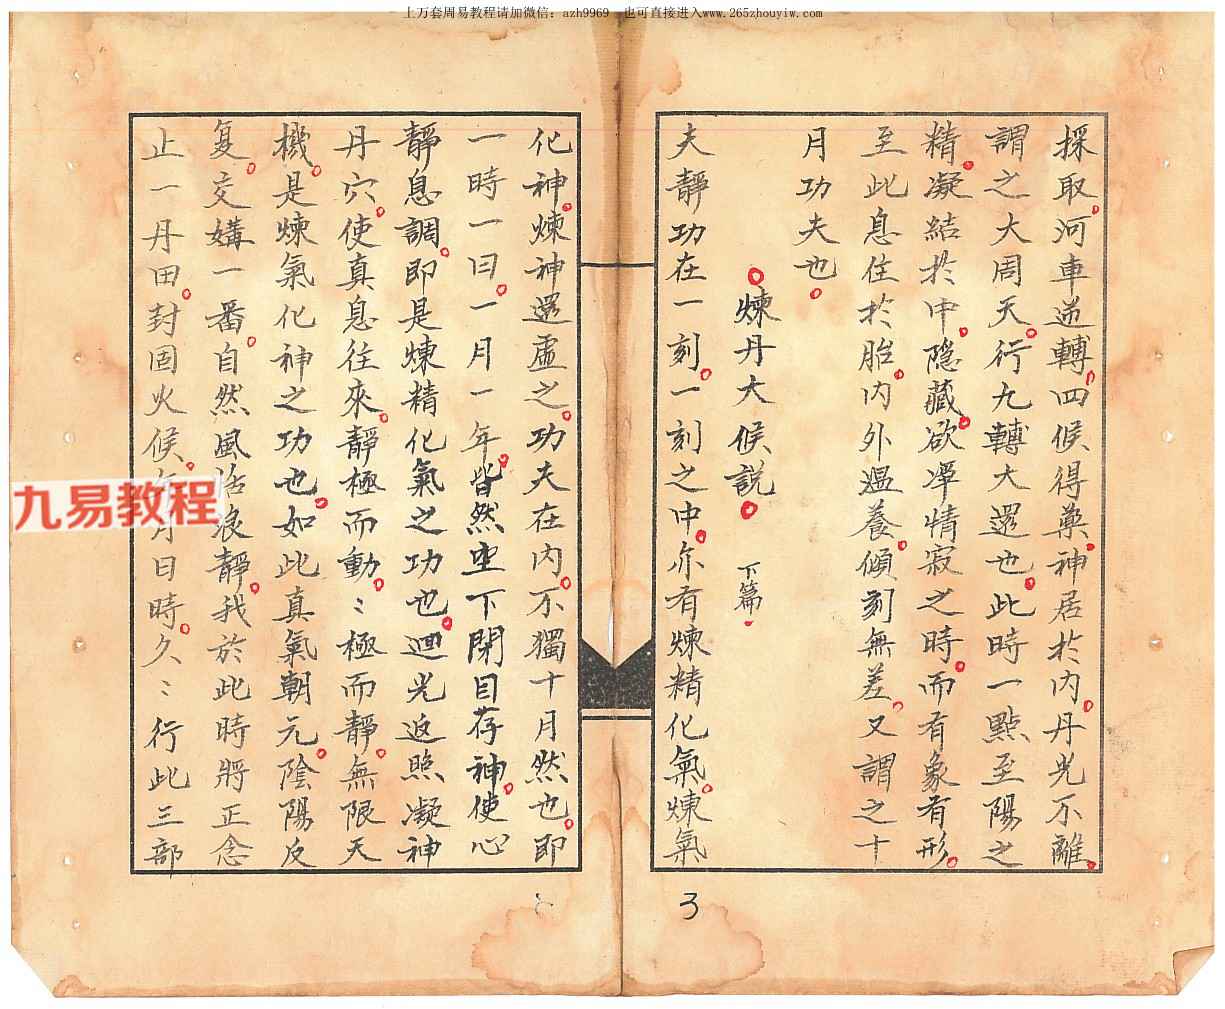 上万套周易教程请加微信：azh9969　也可直接进入www.265zhouyiw.com
採取。河車逆轉。四候得藥。神居於內。丹光不離。
謂之大周天。行九轉大還也。此時一點至陽之
精。凝結於中。隱藏。欲凈情寂之時。而有象有形。
至此息住於胎。內外溫養。傾刻無差。又謂之十
月功夫也。
煉丹大候説。下篇
夫靜功在一刻。一刻之中。亦有煉精化氣。煉氣
化神。煉神還虛之。功夫在內。不獨十月然也。即
一時一日。一月一年。皆然坐下閉目存神。使心
靜息調。即是煉精化氣之功也。迴光返照凝神
丹穴。使真息往來。靜極而動。〻極而靜。無限天
機。是煉氣化神之功也。如此真氣朝元。陰陽反
复。交媾一番。自然風恬浪靜。我於此時將正念
止一丹田。封固火候。年月日時。久〻行此三部
3
九易教程